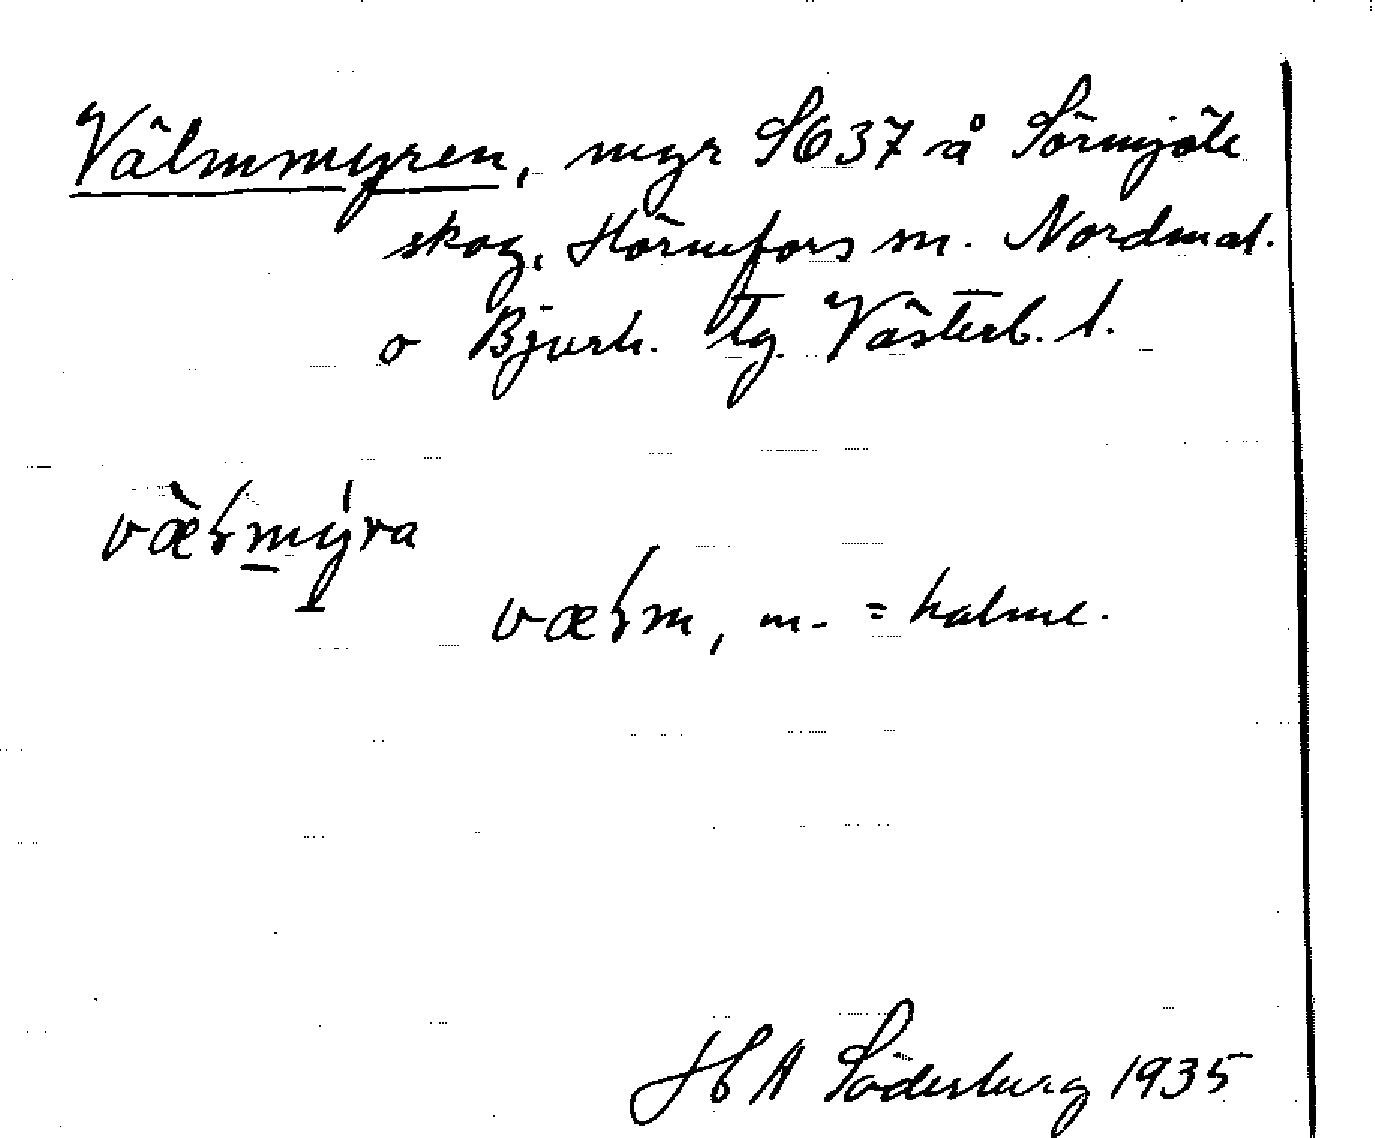 Välmmyren, myr S6 37 å Sörmjöle
skog, Hörnefors sn. Nordmal.
o Bjurh. tg. Västerb. l.
væ̀ɽmýra
væɽm, m. = halme.
H A Söderberg 1935